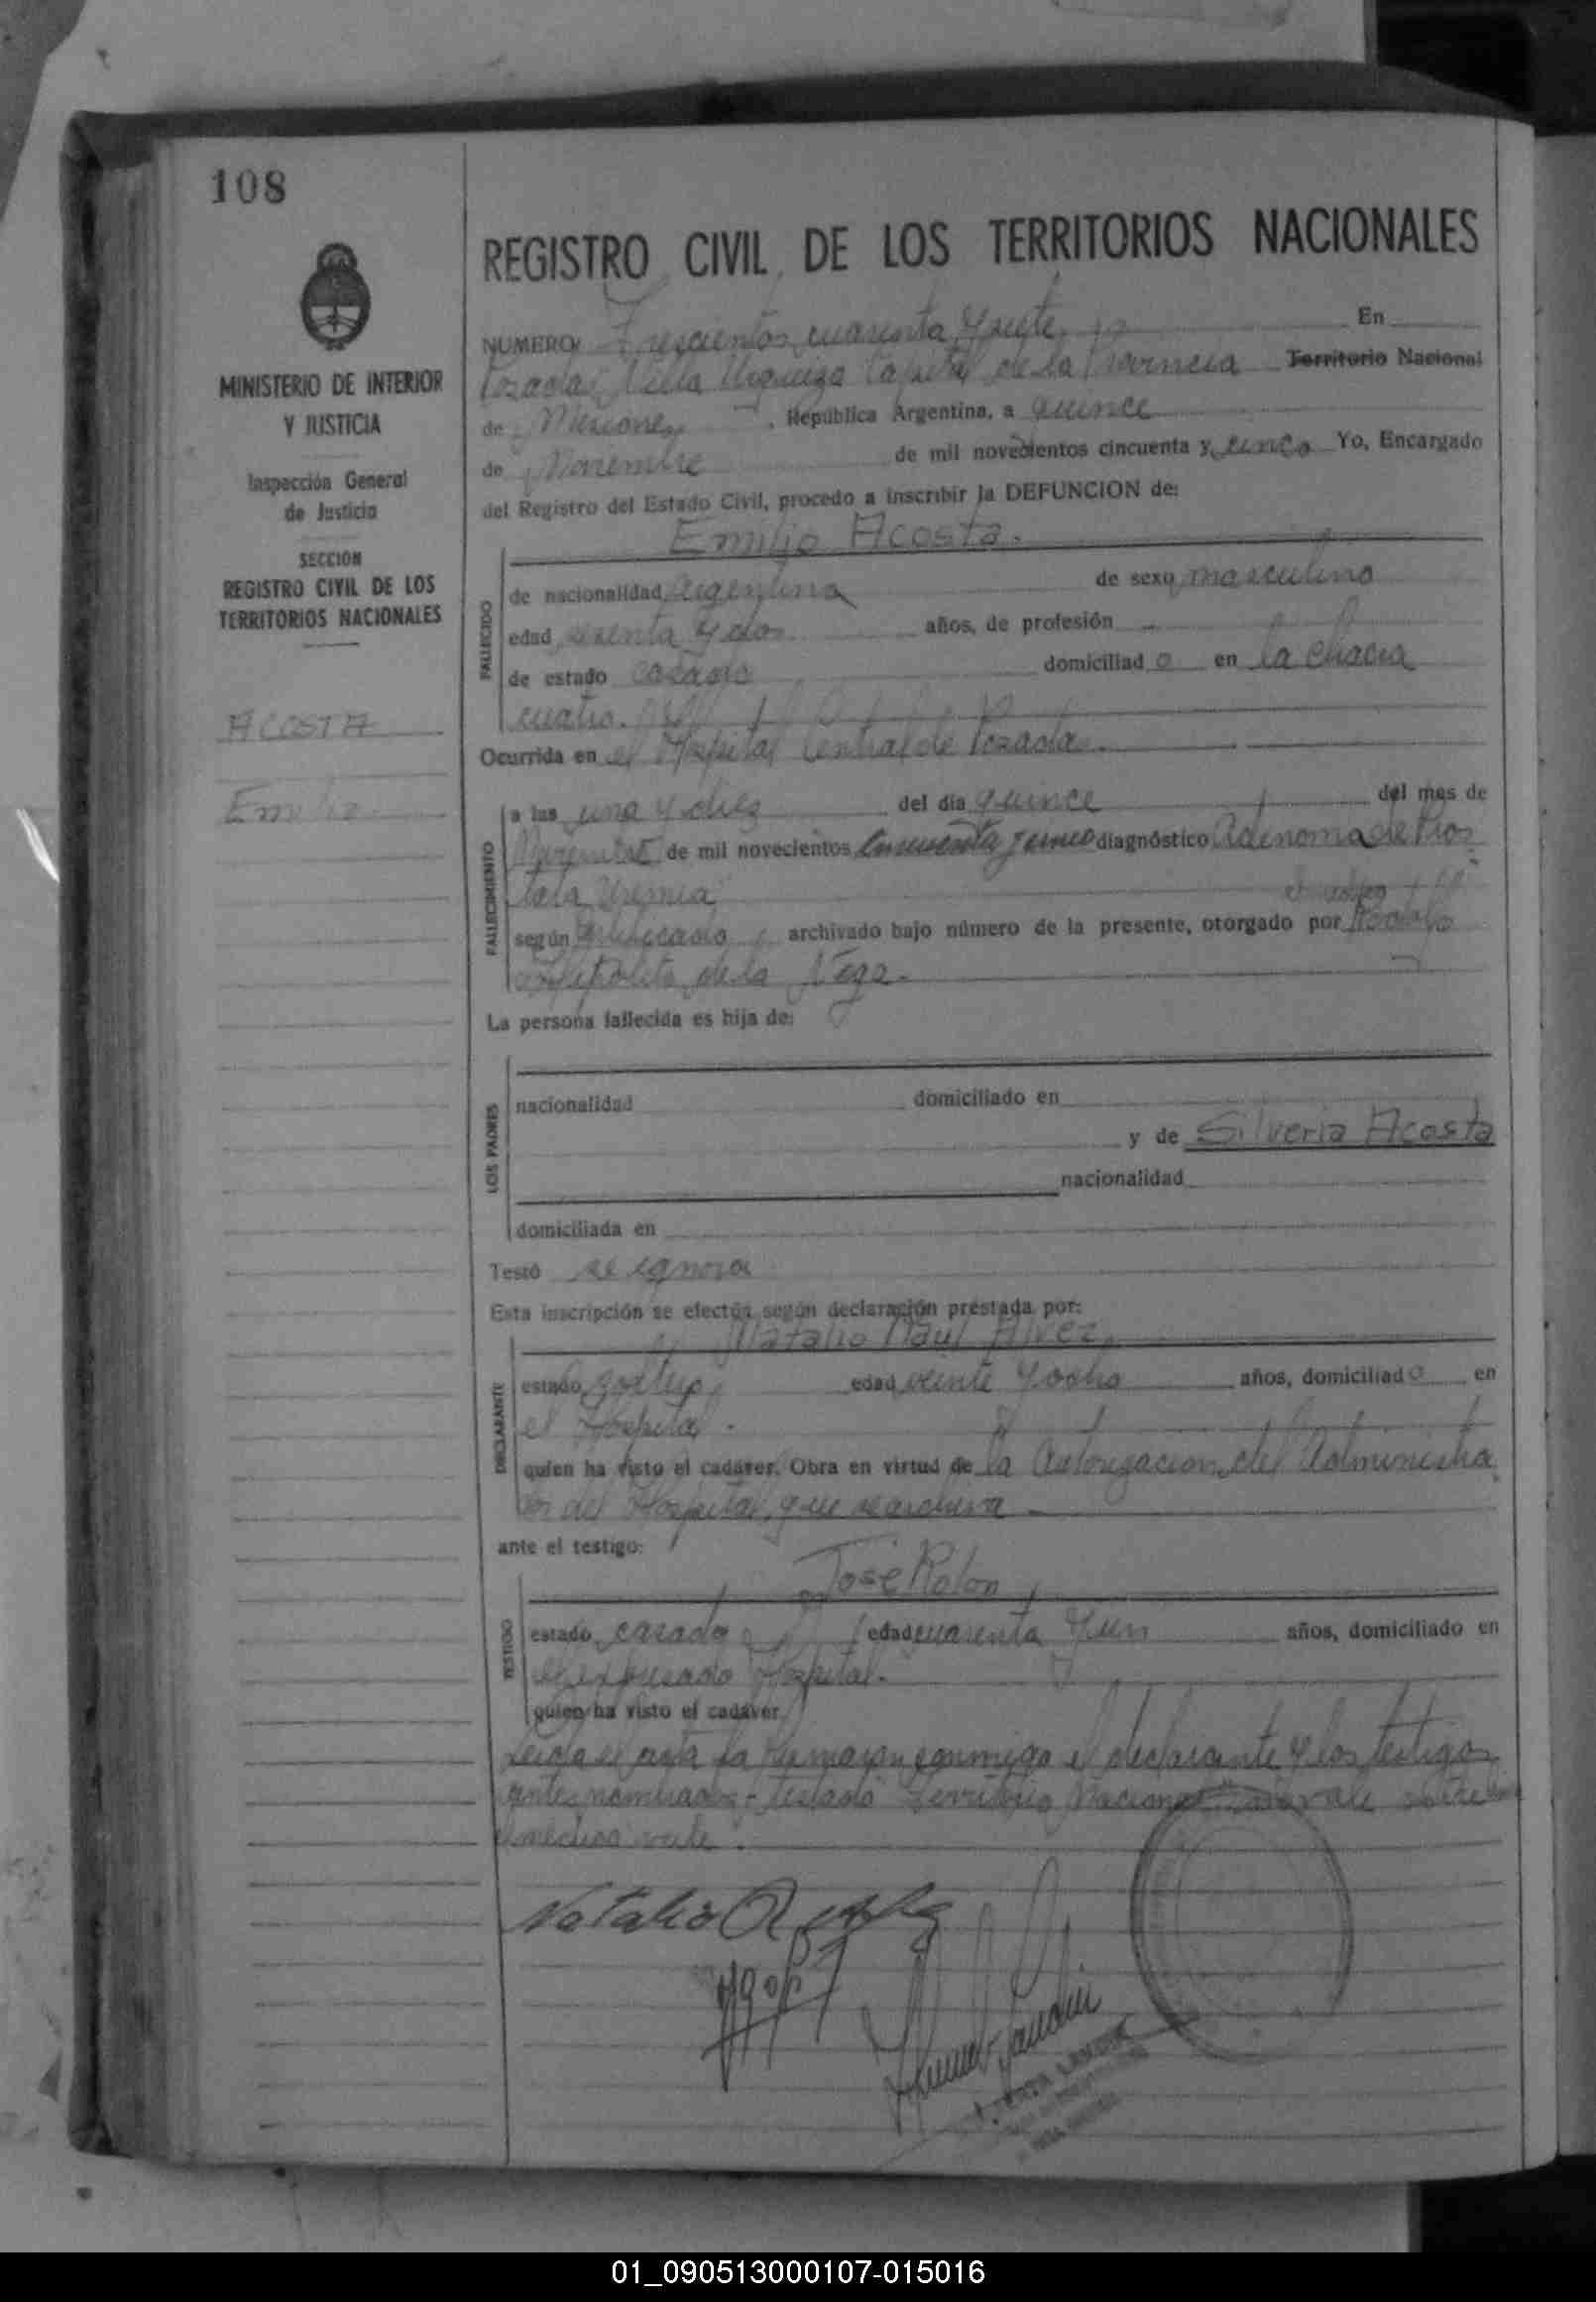 108
REGISTRO CIVIL DE LOS TERRITORIOS NACIONALES
MINISTERIO DE INTERIOR
Y JUSTICIA
Inspección General
de Justicia
SECCION
REGISTRO CIVIL DE LOS
TERRITORIOS NACIONALES
ACOSTA
Emilio
NUMERO Trescientos cuarenta y siete En
Posadas, Villa Urquiza Capital de la Provincia Territorio Nacional
de Misiones, República Argentina, a quince
de Noviembre de mil novecientos cincuenta y cinco Yo, Encargado
del Registro del Estado Civil, procedo a inscribir la DEFUNCION de:
Emilio Acosta.
FALLECIDO
de nacionalidad argentina de sexo masculino
edad y dos años, de profesión -
de estado casado domiciliado en la chacra
cuatro.
Ocurrida en el Hospital Central de Posadas.
FALLECIMIENTO
a las una y diez del día quince del mes de
Noviembre de mil novecientos cincuenta y cinco diagnóstico Adenoma de Prós
tata Uremia
según certificado, archivado bajo número de la presente, otorgado por
Hipólito de la Vega.
La persona fallecida es hija de:
LOS PADRES
nacionalidad domiciliado en
y de Silveria Acosta
nacionalidad
domiciliada en
Testó se ignora
Esta inscripción se efectúa según declaración prestada por:
Natalio Raul Alvez
DECLARANTE
estado soltero, edad veinte y ocho años, domiciliado en
el Hospital.
quien ha visto el cadáver. Obra en virtud de la Autorizacion del Administra
dor del Hospital, que se archiva -
ante el testigo:
José Rolon
TESTIGO
estado casado edad cuarenta y un años, domiciliado en
el expresado Hospital.
quien ha visto el cadáver.
Leida el acta la firmaron conmigo el declarante y los testigos
antes nombrados - testado Territorio Nacional no vale sobre
el médico vale.
01_090513000107-015016